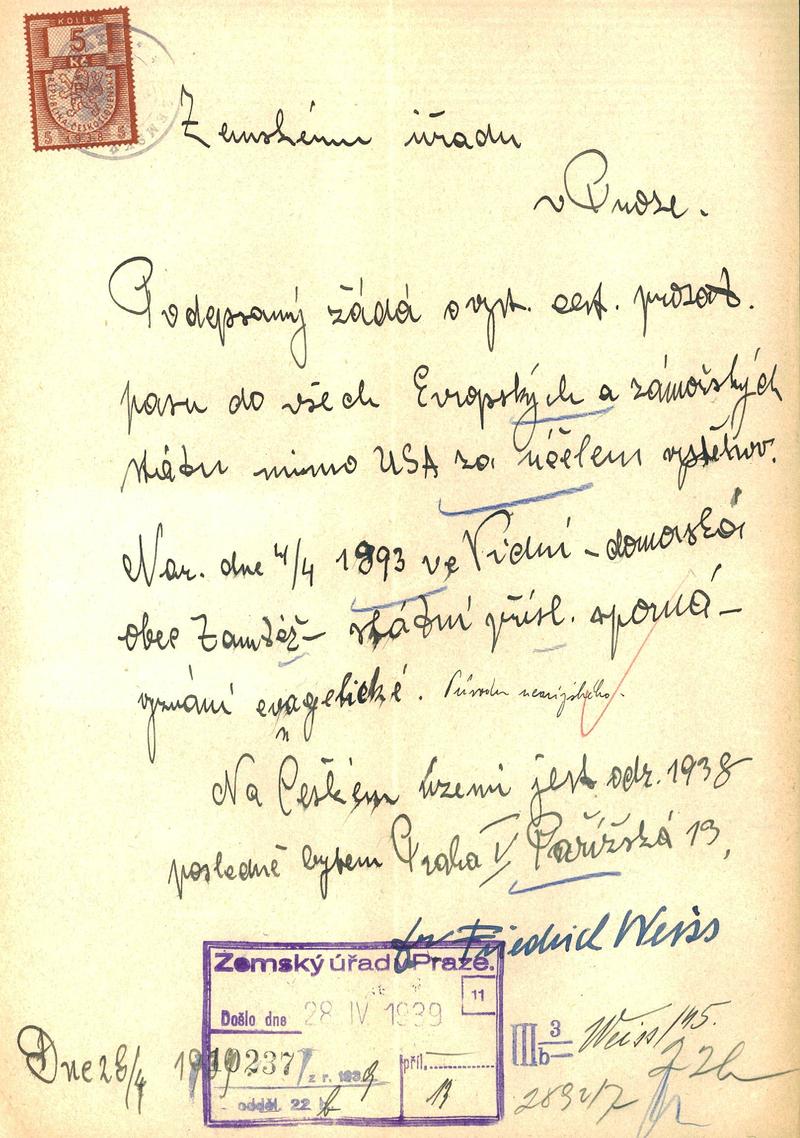 KOLEK
5
Kč
REPUBLIKA ČESKOSLOVENSKÁ
5 1938 5
Zemskému úřadu
v Praze.
Podepsaný žádá o vyst. cest. prozat.
pasu do všech Evropských a zámořských
států mimo USA za účelem vystěhov.
Nar. dne 4/4 1893 ve Vídni – domovská
obec Zamtěž – státní přísl. sporná –
vyznání evagelické. Původu nearijského.
n
Na Českém území jest odr. 1938
posledně bytem Praha V Pařížská 13,
Dr Friedrich Weiss
Zemský úřad v Praze.
11
Došlo dne 28 IV 1939
Dne 28/4 1939
10237
z r. 1939
příl.
odděl. 22 b
13
III 3
b
Weiss/